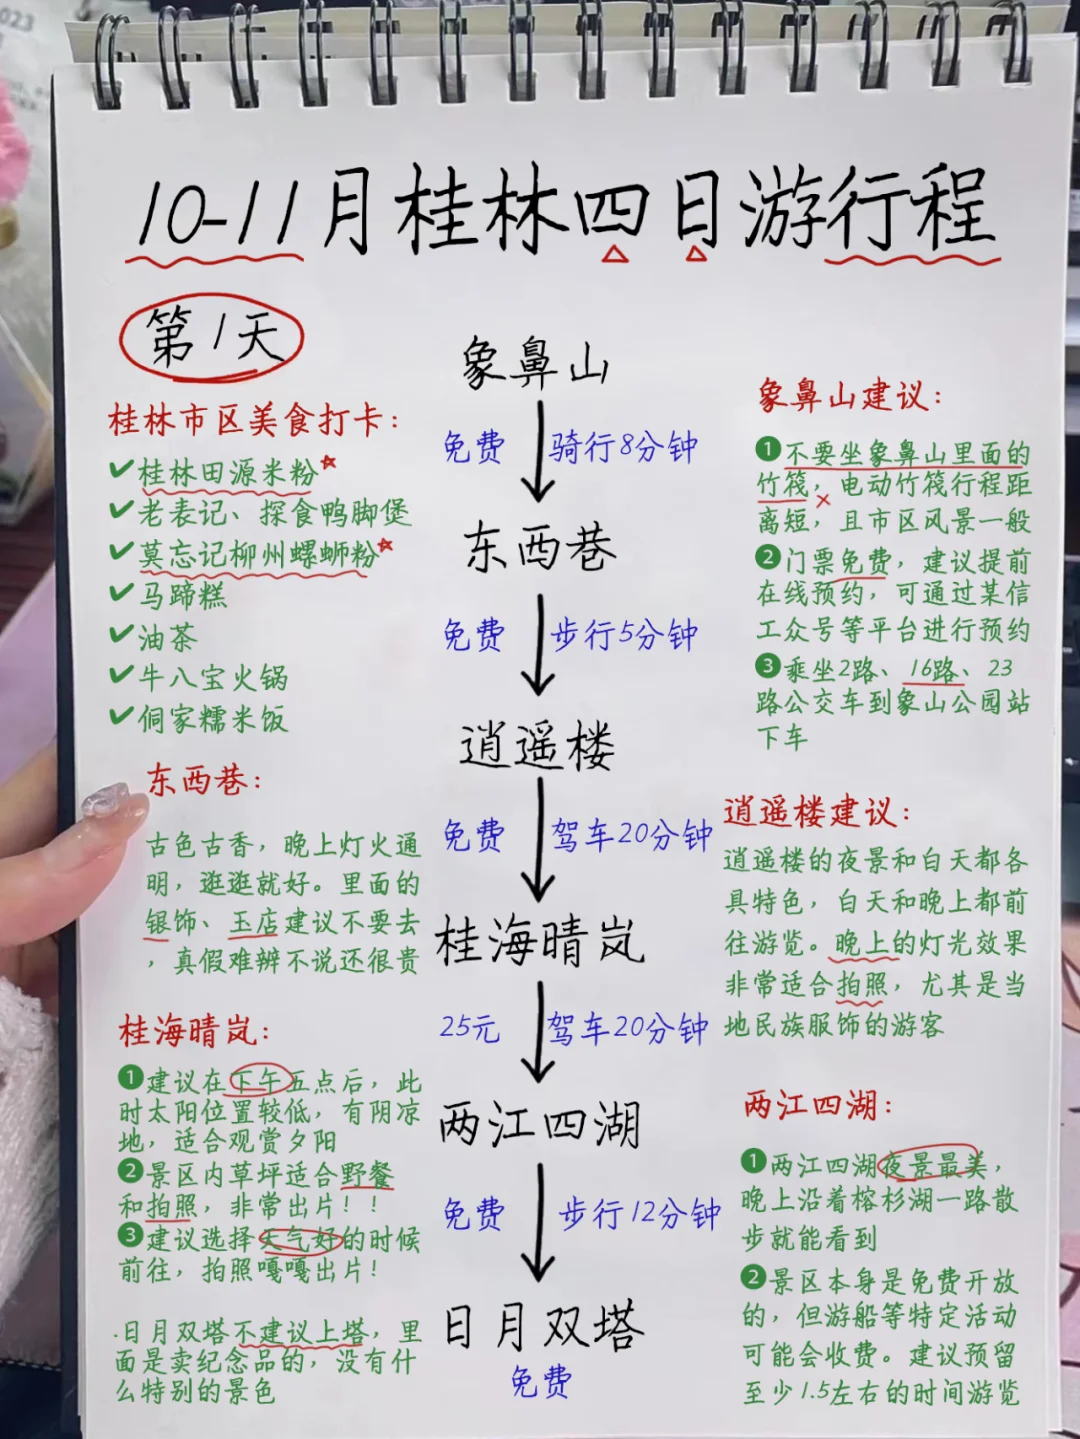 023
10-11月桂林四日游行程
第1天
桂林市区美食打卡：
✔桂林田源米粉
✔老表记、探食鸭脚煲
✔莫忘记柳州螺蛳粉
✔马蹄糕
✔油茶
✔牛八宝火锅
✔侗家糯米饭
东西巷：
古色古香，晚上灯火通
明，逛逛就好。里面的
银饰、玉店建议不要去
，真假难辨不说还很贵
桂海晴岚：
❶建议在下午五点后，此
时太阳位置较低，有阴凉
地，适合观赏夕阳
❷景区内草坪适合野餐
和拍照，非常出片！！
❸建议选择天气好的时候
前往，拍照嘎嘎出片！
.日月双塔不建议上塔，里
面是卖纪念品的，没有什
么特别的景色
象鼻山
免费 骑行8分钟
东西巷
免费 步行5分钟
逍遥楼
免费 驾车20分钟
桂海晴岚
25元 驾车20分钟
两江四湖
免费 步行12分钟
日月双塔
免费
象鼻山建议：
❶不要坐象鼻山里面的
竹筏，电动竹筏行程距
离短，且市区风景一般
❷门票免费，建议提前
在线预约，可通过某信
工众号等平台进行预约
❸乘坐2路、16路、23
路公交车到象山公园站
下车
逍遥楼建议：
逍遥楼的夜景和白天都各
具特色，白天和晚上都前
往游览。晚上的灯光效果
非常适合拍照，尤其是当
地民族服饰的游客
两江四湖：
❶两江四湖夜景最美，
晚上沿着榕杉湖一路散
步就能看到
❷景区本身是免费开放
的，但游船等特定活动
可能会收费。建议预留
至少1.5左右的时间游览